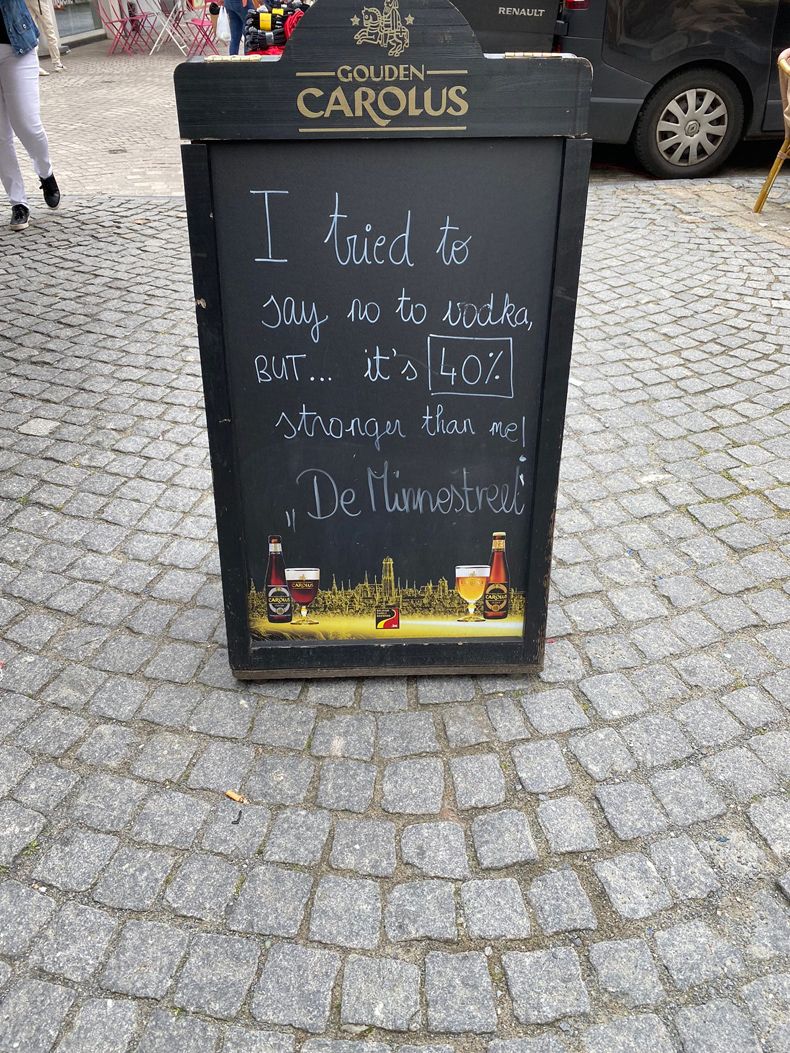 RENAULT
GOUDEN
CAROLUS
I tried to
say no to vodka,
BUT... it's 40%
stronger than me!
"De Minnestreel"
CAROLUS
CAROLUS
CAROLUS